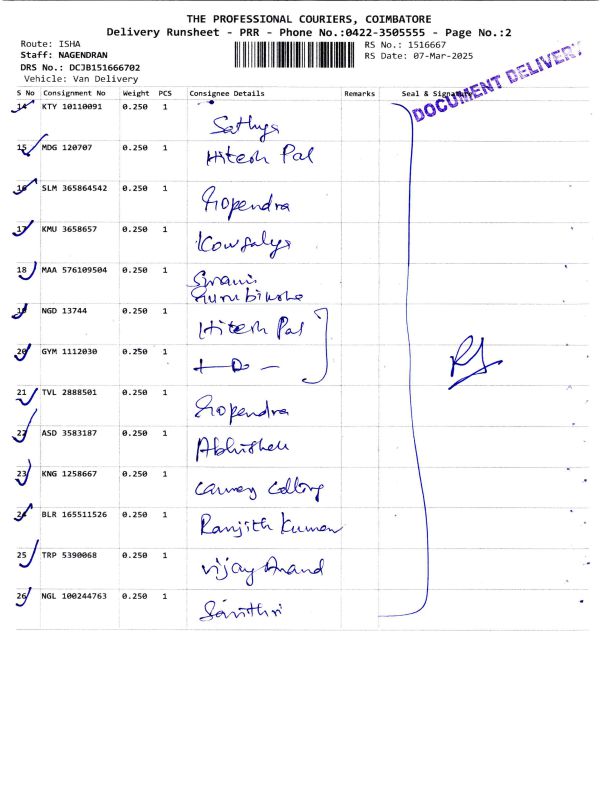 THE PROFESSIONAL COURIERS, COIMBATORE
Delivery Runsheet - PRR - Phone No.:0422-3505555 - Page No.:2
Route: ISHA
Staff: NAGENDRAN
DRS No.: DCJB151666702
Vehicle: Van Delivery
RS No.: 1516667
RS Date: 07-Mar-2025
DOCUMENT DELIVERY
S No Consignment No Weight PCS Consignee Details Remarks Seal & Signature
14 KTY 10110091 0.250 1 Sathya
15 MDG 120707 0.250 1 Hitesh Pal
16 SLM 365864542 0.250 1 Gopendra
17 KMU 3658657 0.250 1 Kowsalya
18 MAA 576109504 0.250 1 Swami
19 NGD 13744 0.250 1 Hitesh Pal
20 GYM 1112030 0.250 1 - D -
21 TVL 2888501 0.250 1 Gopendra
22 ASD 3583187 0.250 1 Abhishek
23 KNG 1258667 0.250 1
24 BLR 165511526 0.250 1 Ranjith Kumar
25 TRP 5390068 0.250 1 Vijay Anand
26 NGL 100244763 0.250 1 Savithri